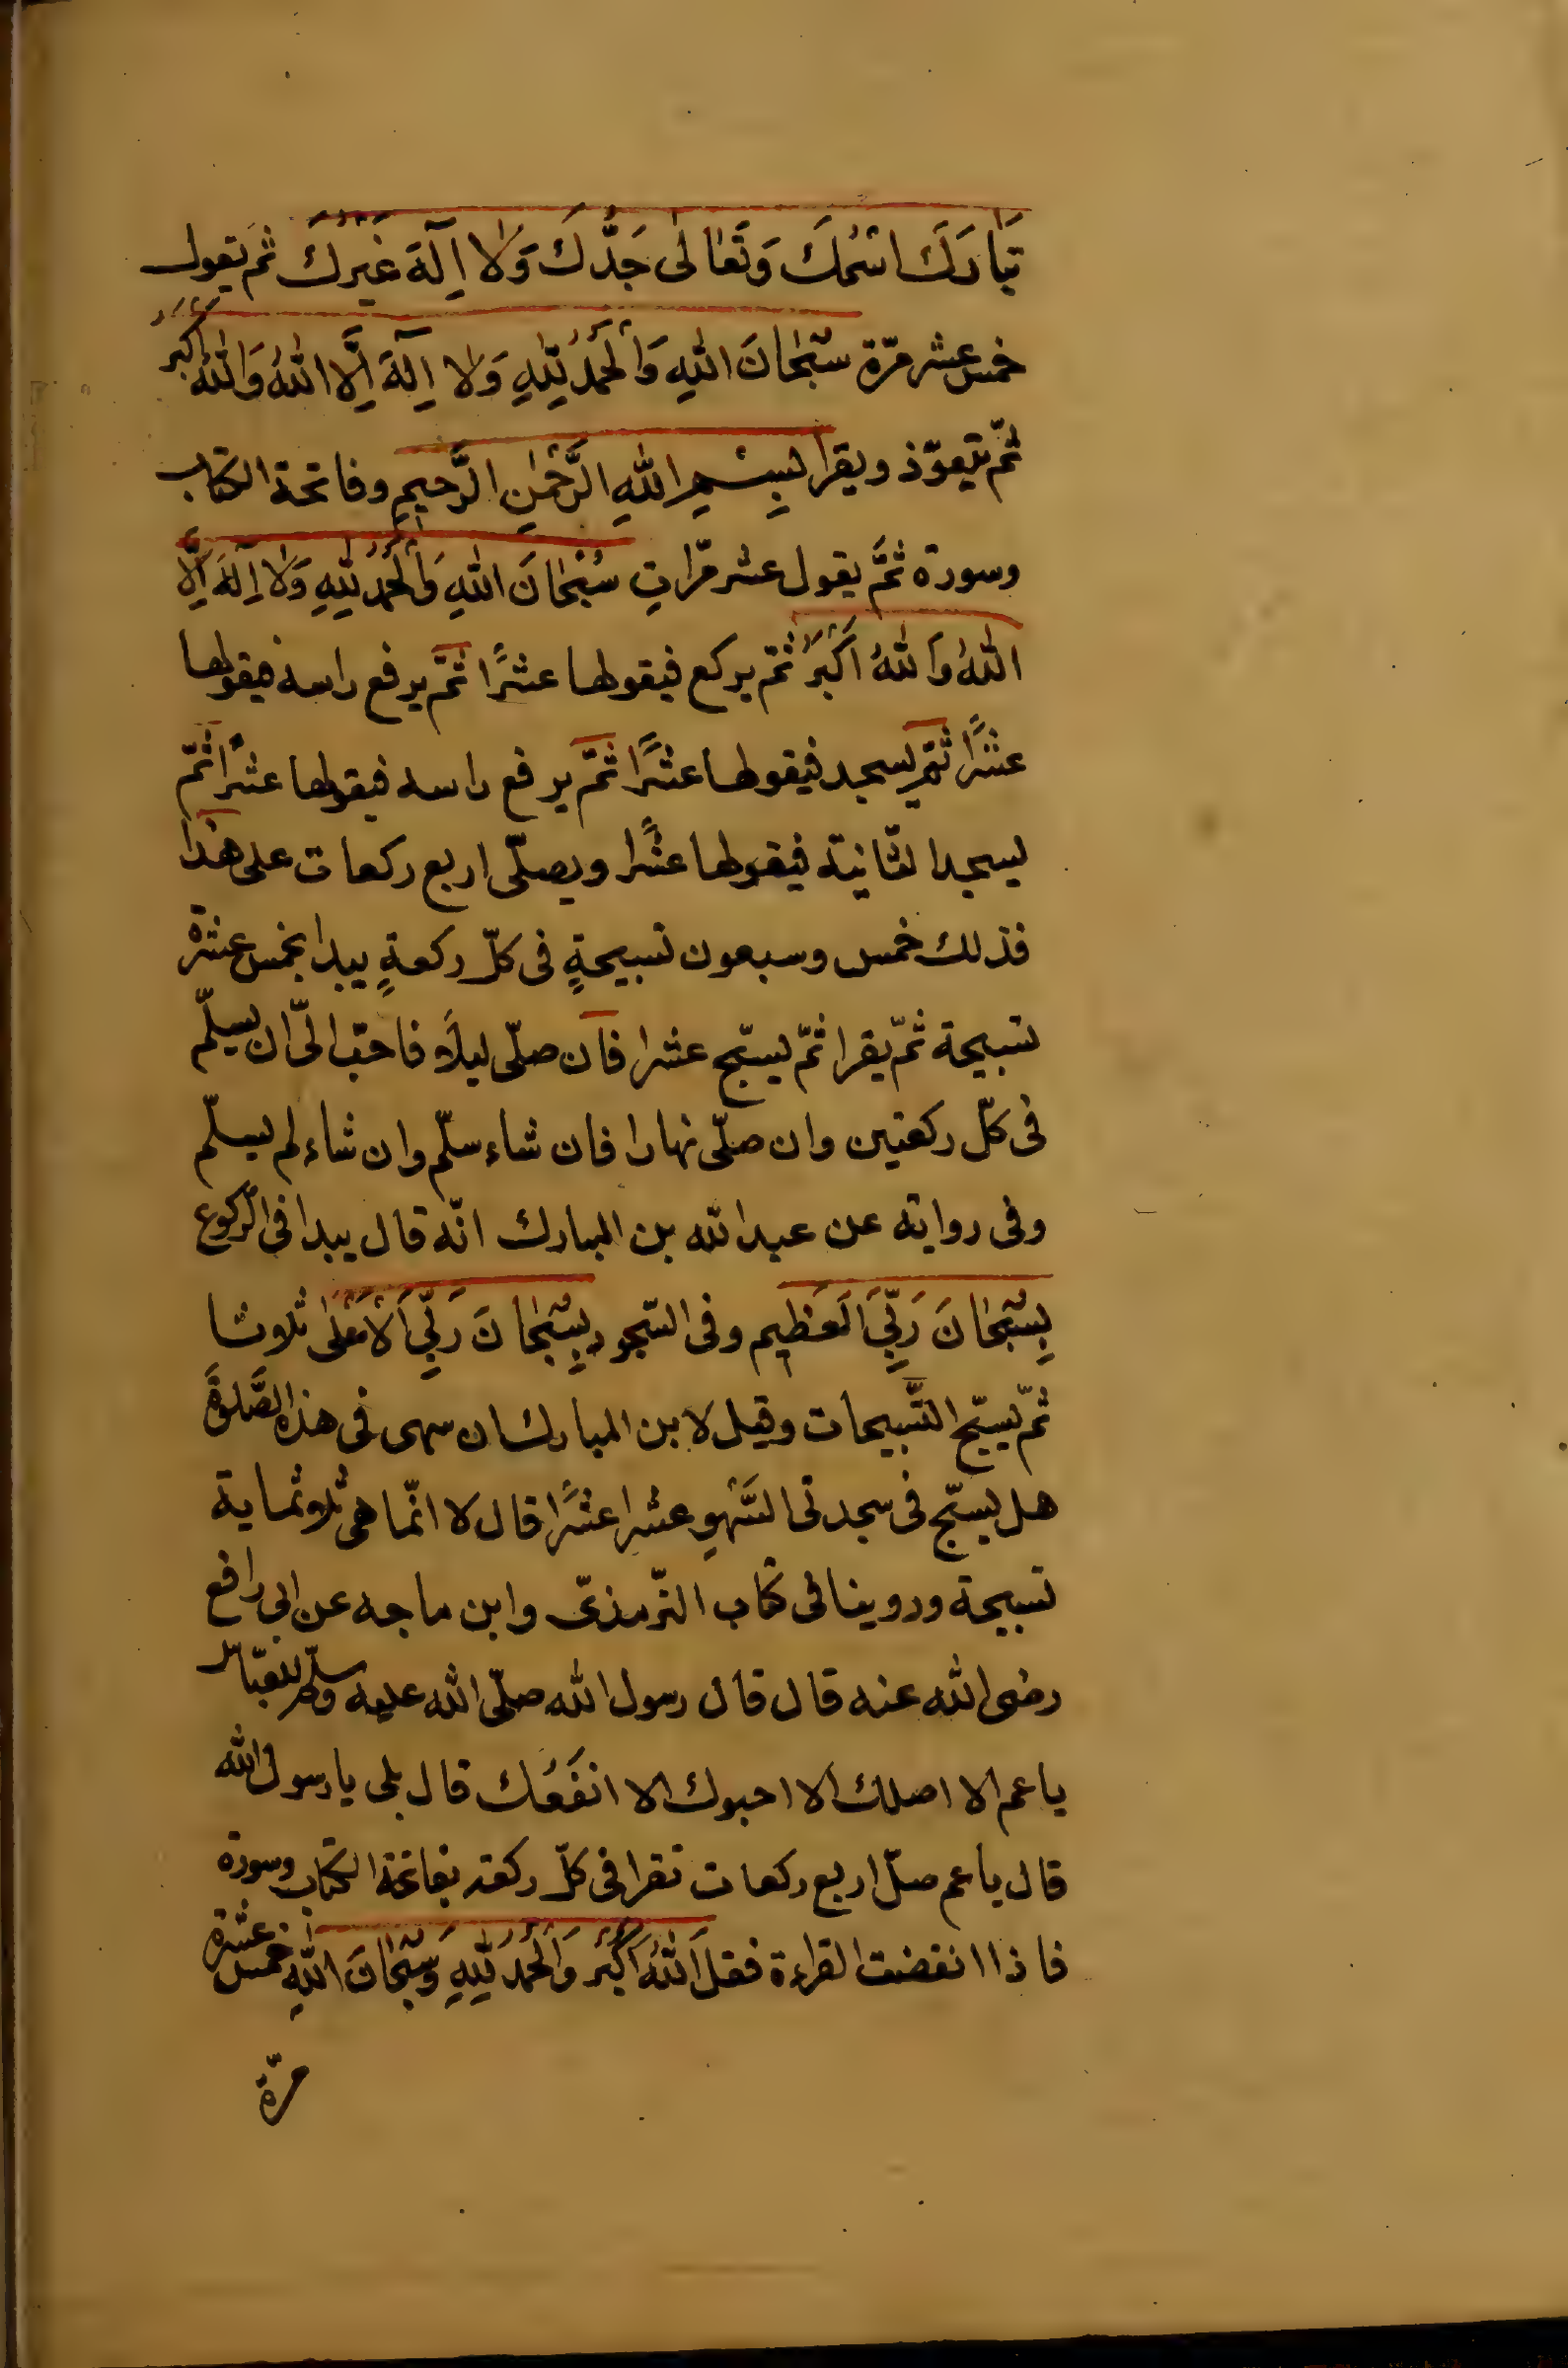 تَبَارَكَ اسْمُكَ وَتَعَالٰى جَدُّكَ وَلَا اِلٰهَ غَيْرُكَ ثم يقول
خمس عشر مرّة سُبْحَانَ اللّٰهِ وَالْحَمْدُ لِلّٰهِ وَلَا اِلٰهَ اِلَّا اللّٰهُ وَاللّٰهُ اَكْبَرُ
ثمّ يتعوّذ ويقرا بِسْمِ اللّٰهِ الرَّحْمٰنِ الرَّحِيمِ وفاتحة الكتاب
وسورة ثمَّ يقول عشر مرّاتٍ سُبْحَانَ اللّٰهِ وَالْحَمْدُ لِلّٰهِ وَلَا اِلٰهَ اِلَّا
اللّٰهُ وَاللّٰهُ اَكْبَرُ ثمّ يركع فيقولها عشرًا ثمَّ يرفع راسه فيقولها
عشرًا ثمّ يسجد فيقولها عشرًا ثمَّ يرفع راسه فيقولها عشرًا ثمّ
يسجد الثّانية فيقولها عشرًا ويصلّى اربع ركعات على هذا
فذلك خمس وسبعون تسبيحةٍ فى كلّ ركعةٍ يبدا بخمس عشرة
تسبيحة ثمّ يقرا ثمّ يسبّح عشرا فان صلّى ليلاً فاحبّ الىّ ان يسلّم
فى كلّ ركعتين وان صلّى نهارا فان شاء سلّم وان شاء لم يسلّم
وفى رواية عن عبد الله بن المبارك انّه قال يبدا فى الرّكوع
بِسُبْحَانَ رَبِّيَ الْعَظِيم وفى السّجود بِسُبْحَانَ رَبِّيَ الْاَعْلٰى ثلاثا
ثمّ يسبّح التّسبيحات وقيل لابن المبارك ان سهى فى هذه الصَّلوةَ
هل يسبّح فى سجدتى السَّهْوِ عشرا عشرًا قال لا انّما هى ثلاثماية
تسبيحة وروينا فى كتاب التّرمذىّ وابن ماجه عن ابى رافع
رضى الله عنه قال قال رسول الله صلّى الله عليه وسلّم للعبّاس
يا عم الا اصلك الا احبوك الا انفَعُك قال بلى يا رسول الله
قال يا عم صلّ اربع ركعات تقرا فى كلّ ركعة بفاتحة الكتاب وسورة
فاذا انقضت القراءة فقل اَللّٰهُ اَكْبَرُ وَالْحَمْدُ لِلّٰهِ وَسُبْحَانَ اللّٰهِ خمس عشرة
مرّة